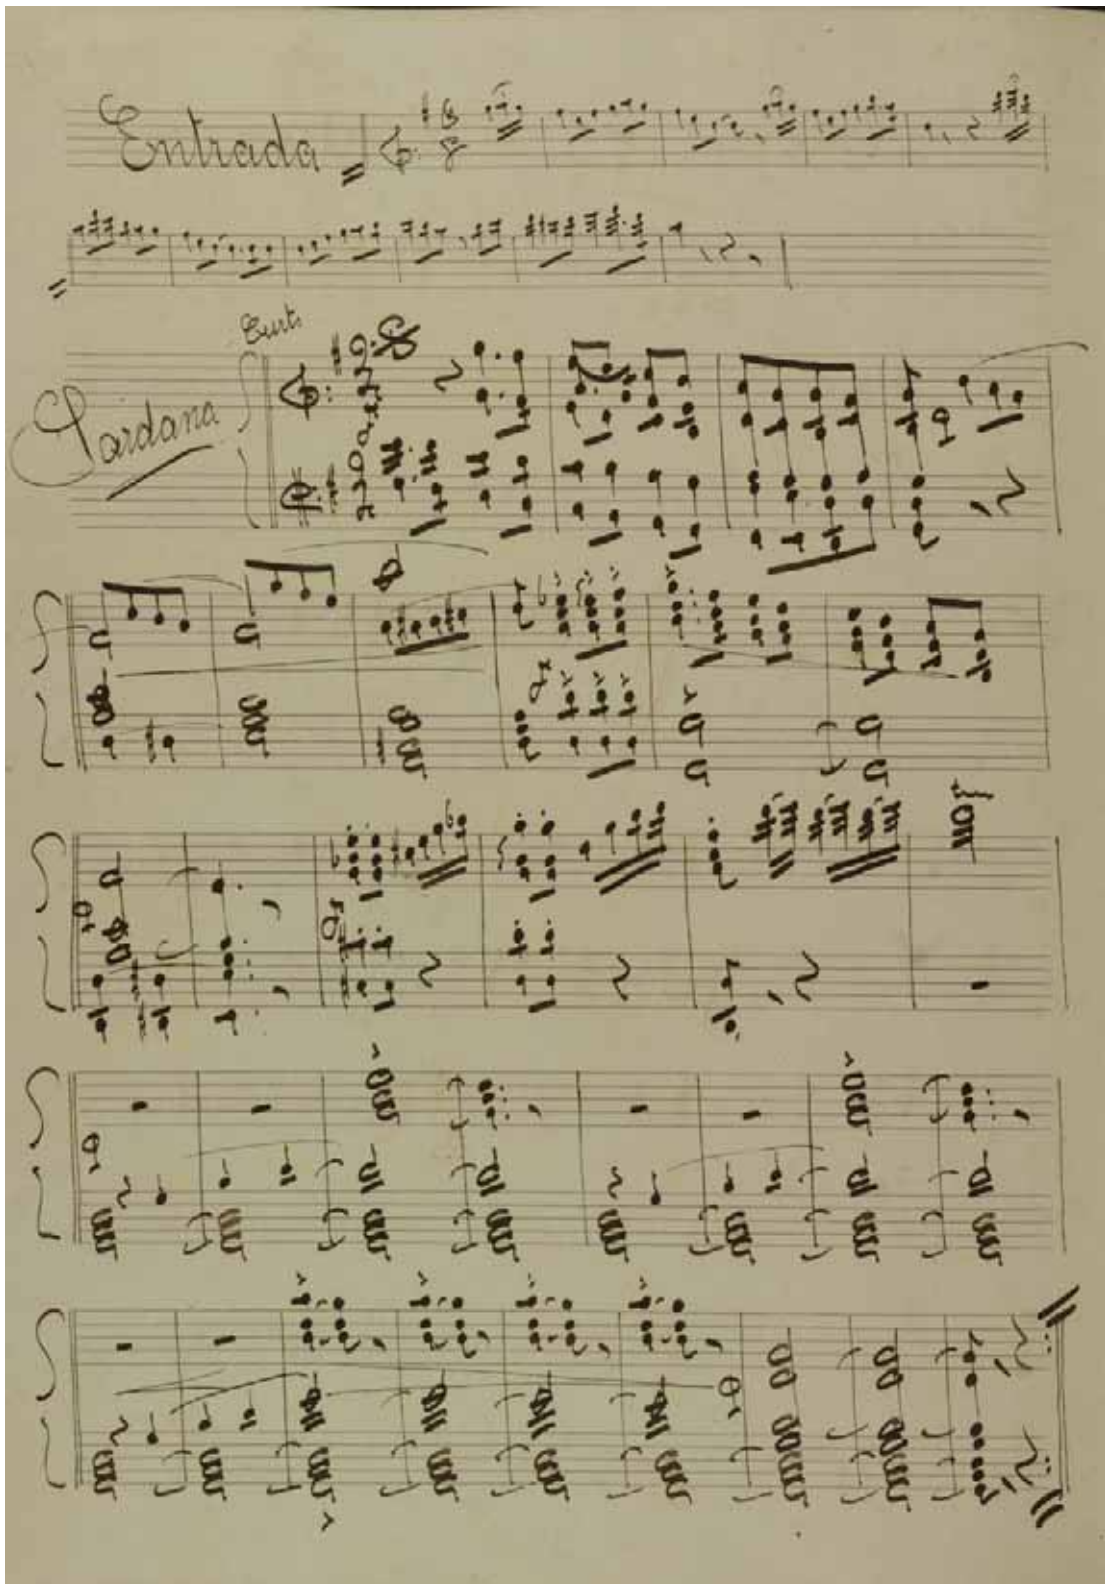 Entrada
Curts
Sardana